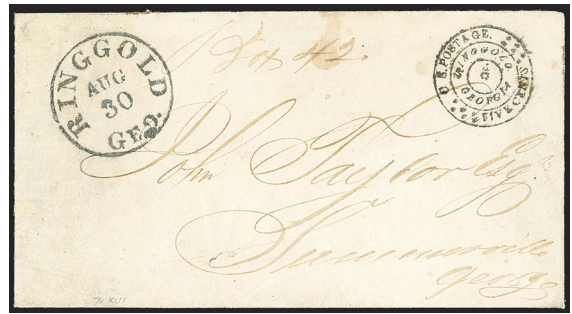 RINGGOLD
AUG
30
GEO.
Box 42.
C S. POSTAGE.
RINGGOLD
5
GEORGIA
FIVE CENTS
John Taylor Esq.
Summerville
Georgia